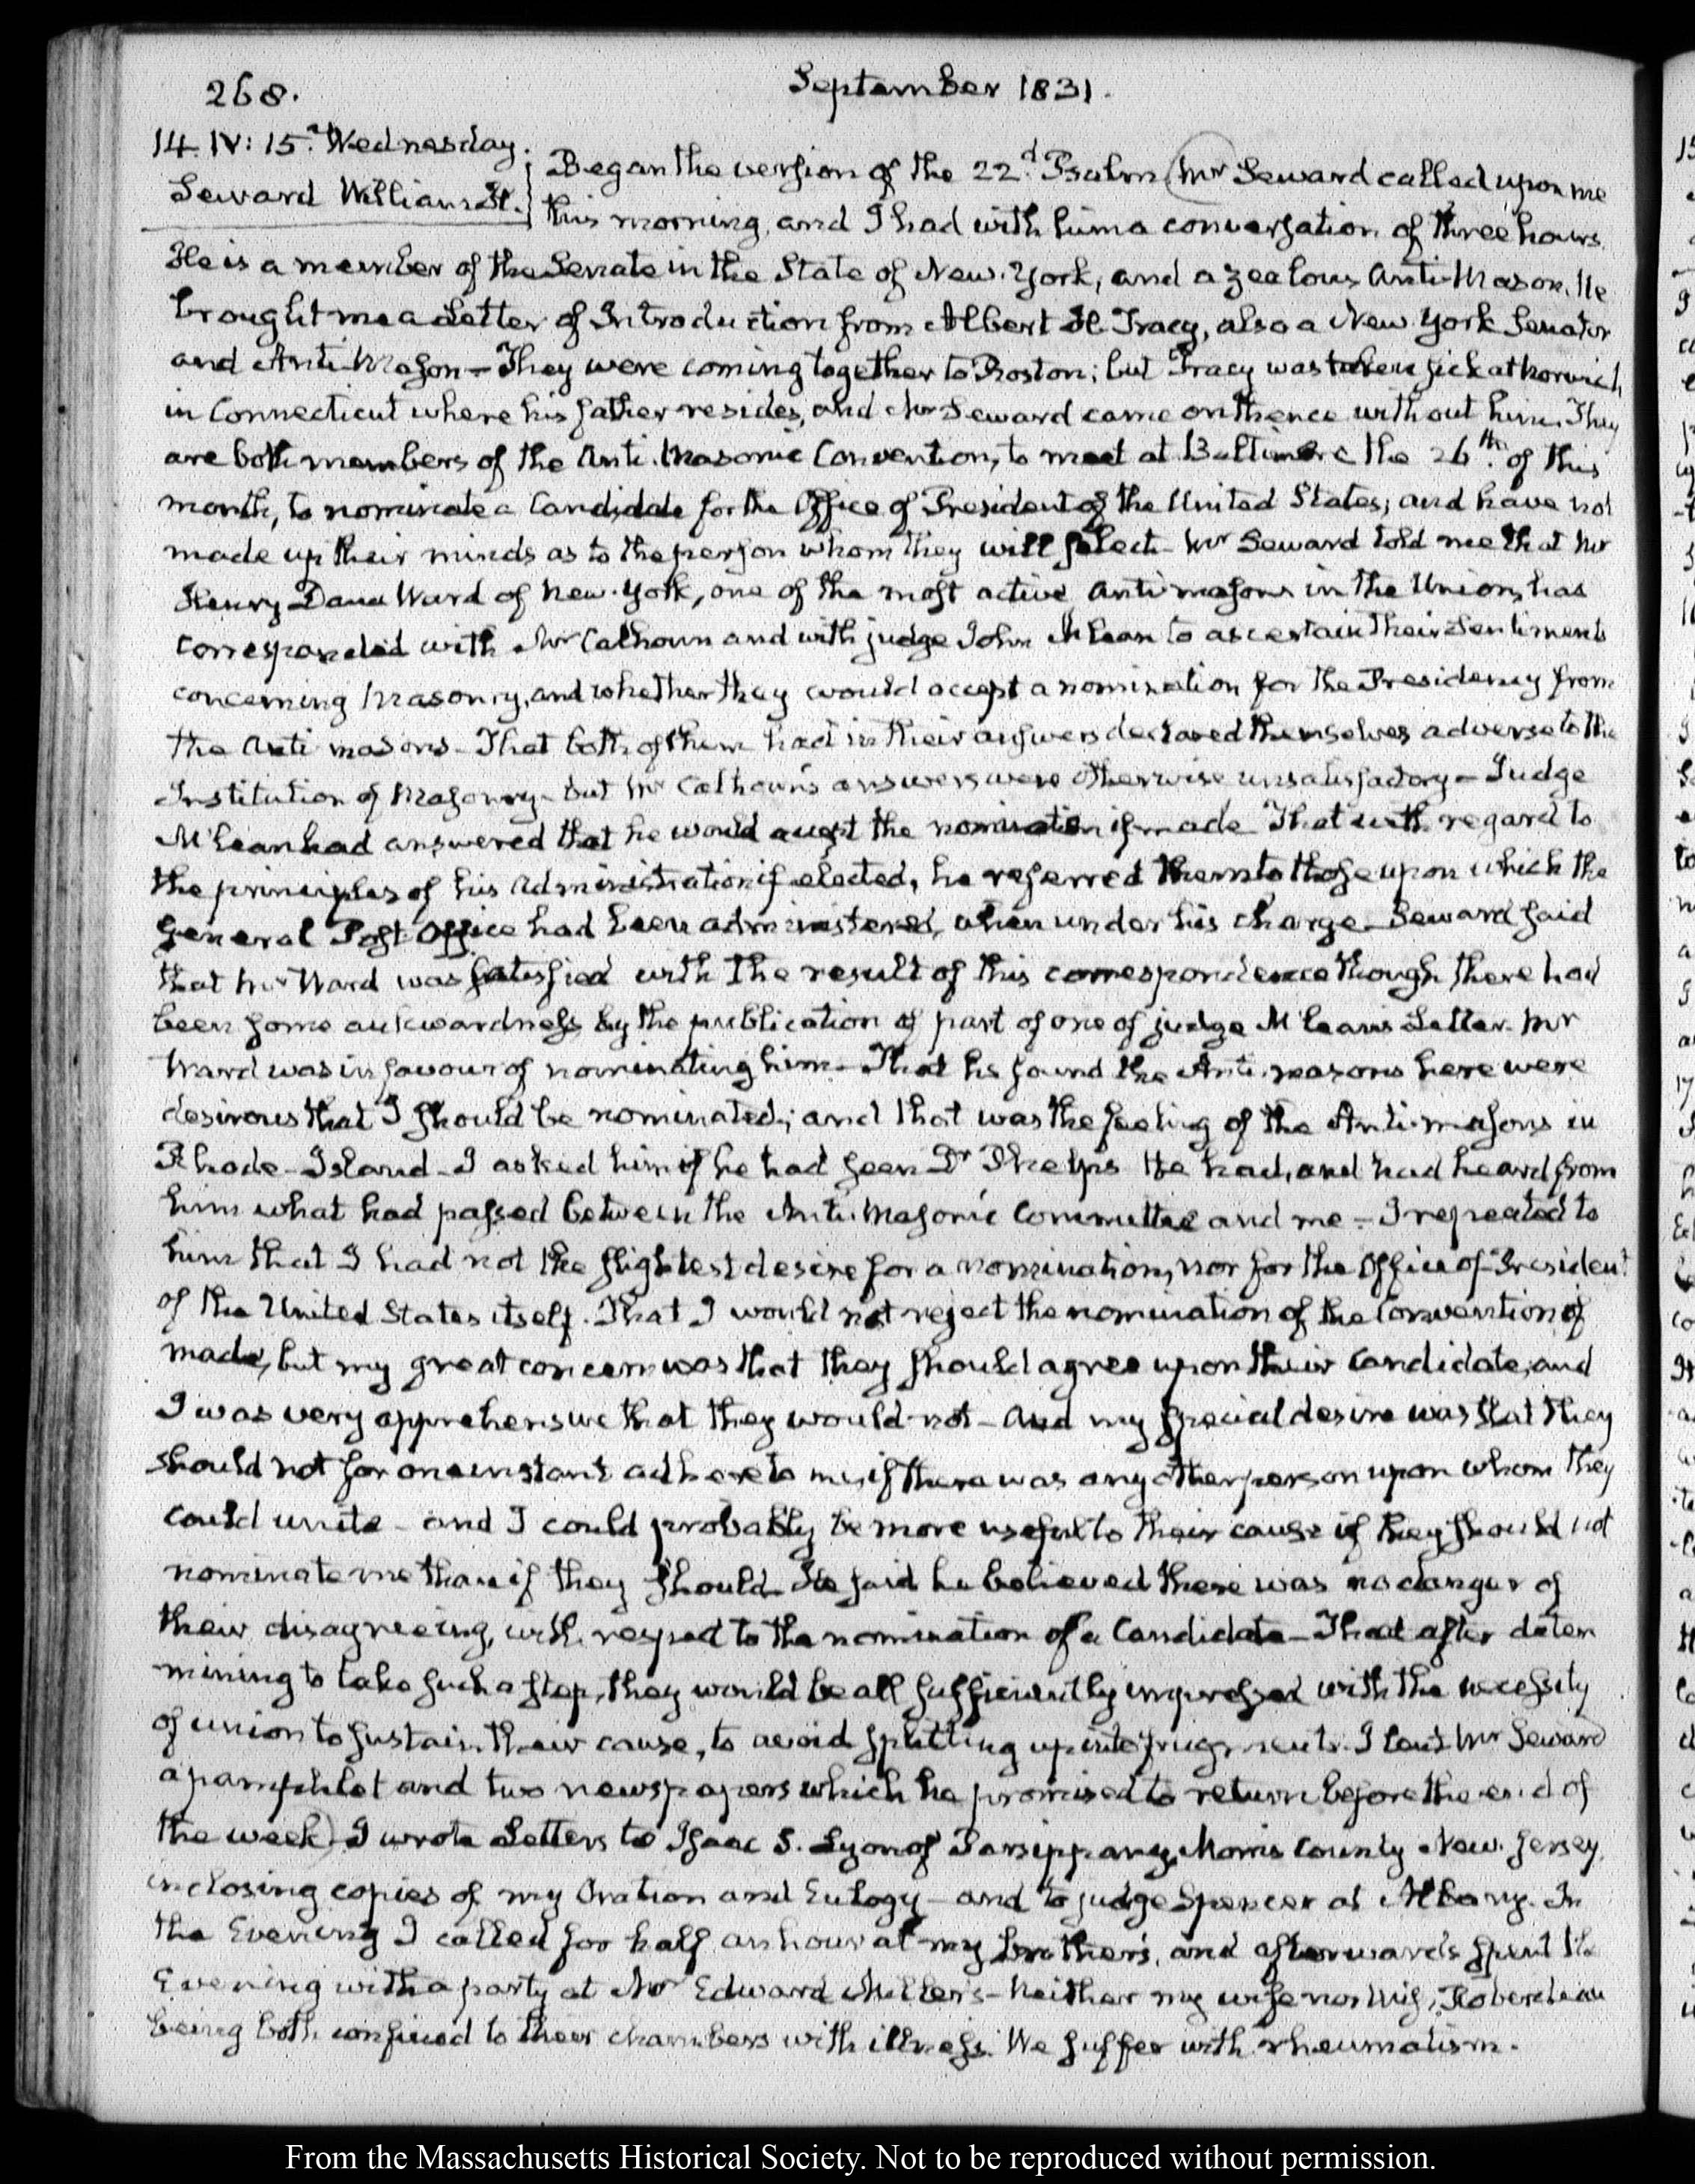 268.
September 1831.
14. IV: 15. Wednesday.
Seward William H.
Began the version of the 22d. Psalm (Mr Seward called upon me
this morning, and I had with him a conversation of three hours.
He is a member of the Senate in the State of New-York, and a zealous Anti-Mason. He
brought me a Letter of Introduction from Albert H. Tracy, also a New York Senator
and Anti-Mason — They were coming together to Boston; but Tracy was taken sick at Norwich,
in Connecticut where his father resides, and Mr Seward came on thence without him. They
are both members of the Anti-Masonic Convention, to meet at Baltimore the 26th. of this
month, to nominate a Candidate for the Office of President of the United States; and have not
made up their minds as to the person whom they will select — Mr Seward told me that Mr
Henry Dana Ward of New-York, one of the most active Anti masons in the Union, has
corresponded with Mr Calhoun and with judge John McLean to ascertain their Sentiments
concerning Masonry, and whether they would accept a nomination for the Presidency from
the Anti masons — That both of them had in their answers declared themselves adverse to the
Institution of Masonry — but Mr Calhoun's answers were otherwise unsatisfactory — Judge
McLean had answered that he would accept the nomination if made That with regard to
the principles of his administration if elected, he referred them to those upon which the
General Post-Office had been administered, when under his charge — Seward said
that Mr Ward was satisfied with the result of this correspondence though there had
been some aukwardness by the publication of part of one of judge McLean's Letter. Mr
Ward was in favour of nominating him — That he found the Anti-masons here were
desirous that I should be nominated; and that was the feeling of the Anti-masons in
Rhode-Island — I asked him if he had seen Dr Phelps He had, and had heard from
him what had passed between the Anti-Masonic Committee and me — I repeated to
him that I had not the slightest desire for a nomination, nor for the Office of President
of the United States itself. That I would not reject the nomination of the Convention if
made, but my great concern was that they should agree upon their Candidate, and
I was very apprehensive that they would not — And my special desire was that they
should not for one instant adhere to me, if there was any other person upon whom they
could unite — and I could probably be more useful to their cause if they should not
nominate me than if they should — He said he believed there was no danger of
their disagreeing, with respect to the nomination of a Candidate — That after deter
mining to take such a step, they would be all sufficiently impressed with the necessity
of union to sustain their cause, to avoid splitting up into fragments. I lent Mr Seward
a pamphlet and two newspapers which he promised to return before the end of
the week) I wrote Letters to Isaac S. Lyon of Parsippany, Morris County New-Jersey,
inclosing copies of my Oration and Eulogy — and to judge Spencer at Albany. In
the Evening I called for half an hour at my brother's, and afterwards spent the
Evening with a party at Mr Edward Miller's — Neither my wife nor Mrs, Roberdeau
being both confined to their chambers with illness. We suffer with rheumatism.
From the Massachusetts Historical Society. Not to be reproduced without permission.